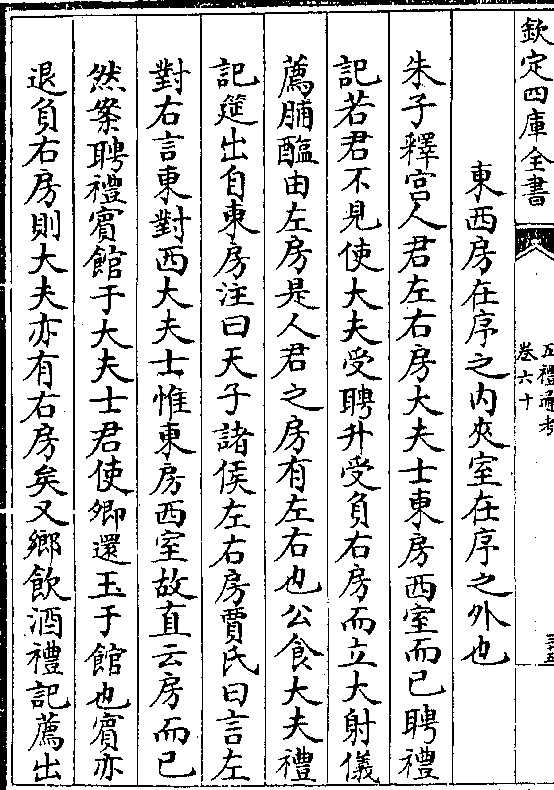 欽定四庫全書
五禮通考
卷六十
東西房在序之内夾室在序之外也
朱子釋宫人君左右房大夫士東房西室而已聘禮
記若君不見使大夫受聘升受負右房而立大射儀
薦脯醢由左房是人君之房有左右也公食大夫禮
記筵出自東房注曰天子諸侯左右房賈氏曰言左
對右言東對西大夫士惟東房西室故直云房而已
然案聘禮賓館于大夫士君使卿還玉于館也賓亦
退負右房則大夫亦有右房矣又鄉飲酒禮記薦出